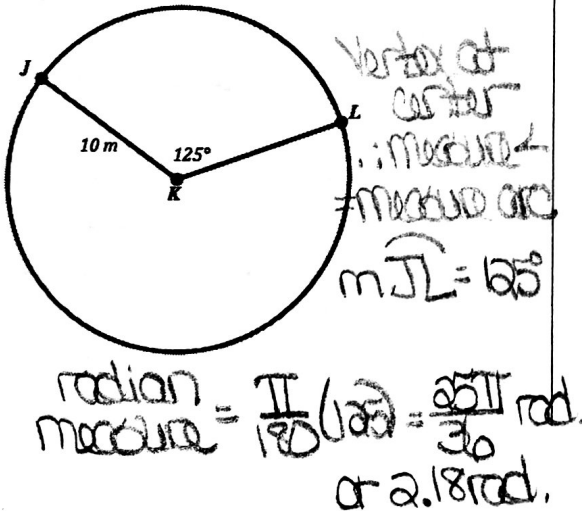 J
Vertex at
center
L
10 m
125°
∴ measure ∠
K
= measure arc
mJL = 125°
radian
measure = π/180 (125) = 25π/36 rad.
or 2.18 rad.